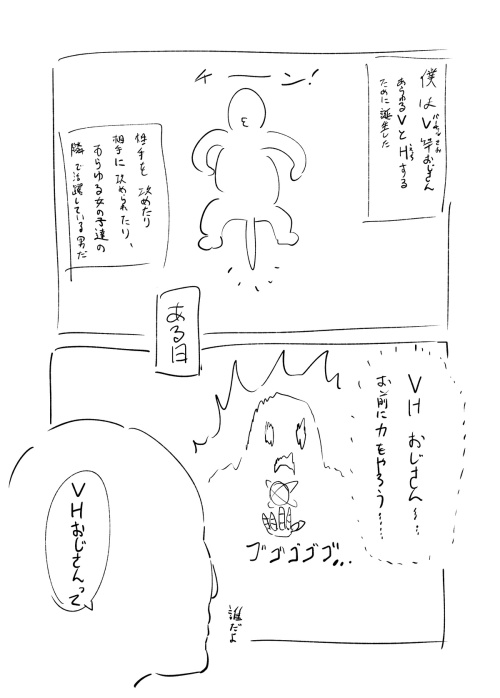 僕はV竿おじさん
バーチャさお
あらゆるVとHする
えち
ために誕生した
チーン!
相手を攻めたり
相手に攻められたり、
あらゆる女の子達の
隣で活躍している男だ
ある日
VHおじさん〜…
お前に力をやろう……
ゴゴゴゴゴ…
VHおじさんって
誰だよ